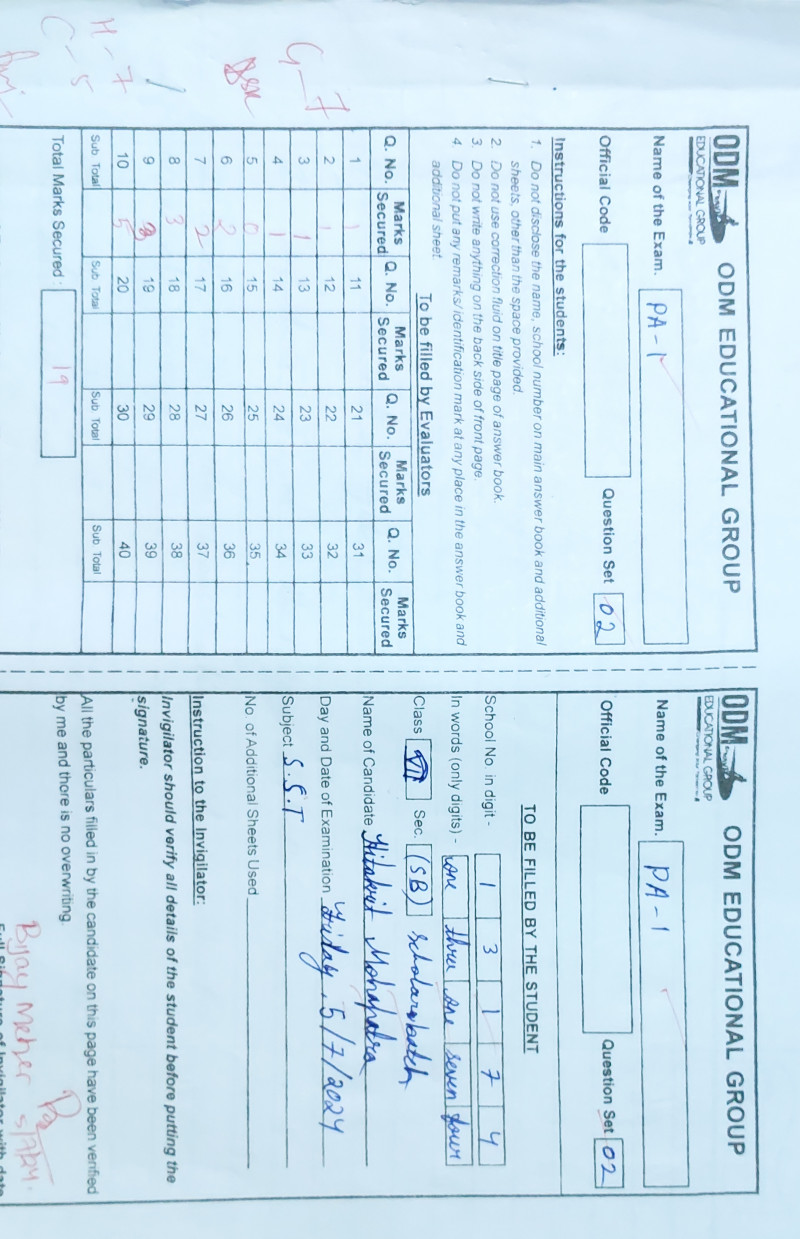 ODM EDUCATIONAL GROUP
ODM
EDUCATIONAL GROUP
Name of the Exam. PA-1
Official Code
Question Set 02
Instructions for the students:
1. Do not disclose the name, school number on main answer book and additional
sheets, other than the space provided.
2. Do not use correction fluid on title page of answer book.
3. Do not write anything on the back side of front page.
4. Do not put any remarks/identification mark at any place in the answer book and
additional sheet.
To be filled by Evaluators
Q. No. Marks Secured Q. No. Marks Secured Q. No. Marks Secured Q. No. Marks Secured
1 1 11 21 31
2 1 12 22 32
3 1 13 23 33
4 1 14 24 34
5 0 15 25 35
6 2 16 26 36
7 2 17 27 37
8 3 18 28 38
9 19 29 39
10 5 20 30 40
Sub Total Sub Total Sub Total Sub Total
Total Marks Secured : 19
G-7
H-7
C-5
ODM EDUCATIONAL GROUP
ODM
EDUCATIONAL GROUP
Name of the Exam. PA-1
Official Code
Question Set 02
TO BE FILLED BY THE STUDENT
School No. in digit - 1 3 1 7 4
In words (only digits) - one three one seven four
Class VII Sec. (SB) scholars batch
Name of Candidate Hitakrit Mohapatra
Day and Date of Examination Friday, 5/7/2024
Subject S.S.T
No. of Additional Sheets Used
Instruction to the Invigilator:
Invigilator should verify all details of the student before putting the
signature.
All the particulars filled in by the candidate on this page have been verified
by me and there is no overwriting.
Bijay Meher
5/7/24.
Full Signature of Invigilator with date